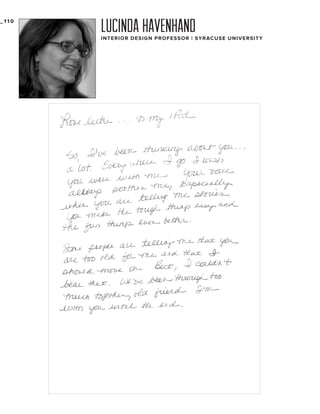 _110
LUCINDA HAVENHAND
INTERIOR DESIGN PROFESSOR | SYRACUSE UNIVERSITY
Love letter ... to my iPod
So, I've been thinking about you...
a lot. Everywhere I go I wish
you were with me. Your voice
always soothes me, especially
when you are telling me stories
you make the tough things easy and
the fun things even better.
Some people are telling me that you
are too old for me and that I
should move on. But, I couldn't
bear that. We've been through too
much together, old friend. I'm
with you until the end.